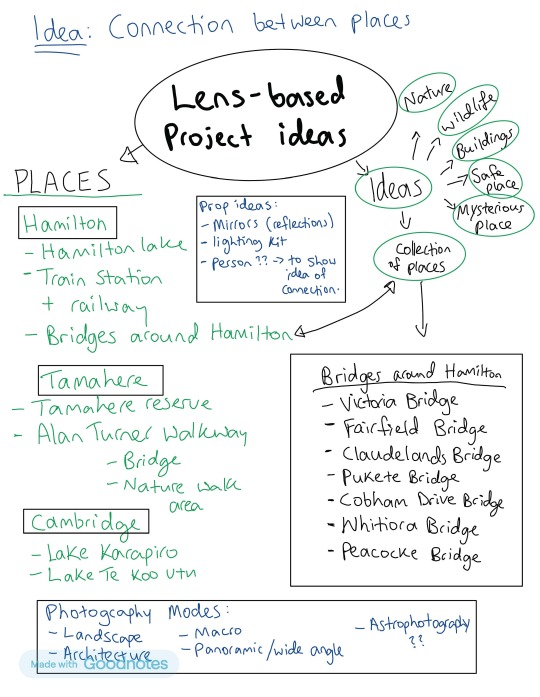 Idea: Connection between places
Lens-based
Project ideas
Nature
Wildlife
Buildings
Safe
place
Mysterious
place
Ideas
Collection
of places
PLACES
Hamilton
- Hamilton lake
- Train Station
+ railway
- Bridges around Hamilton
Prop ideas:
- Mirrors (reflections)
- lighting kit
- Person ?? → to show
idea of
connection.
Tamahere
- Tamahere reserve
- Alan Turner Walkway
- Bridge
- Nature walk
area
Cambridge
- Lake Karapiro
- Lake Te Koo Utu
Bridges around Hamilton
- Victoria Bridge
- Fairfield Bridge
- Claudelands Bridge
- Pukete Bridge
- Cobham Drive Bridge
- Whitiora Bridge
- Peacocke Bridge
Photography Modes:
- Landscape
- Architecture
- Macro
- Panoramic/wide angle
- Astrophotography
??
Made with Goodnotes